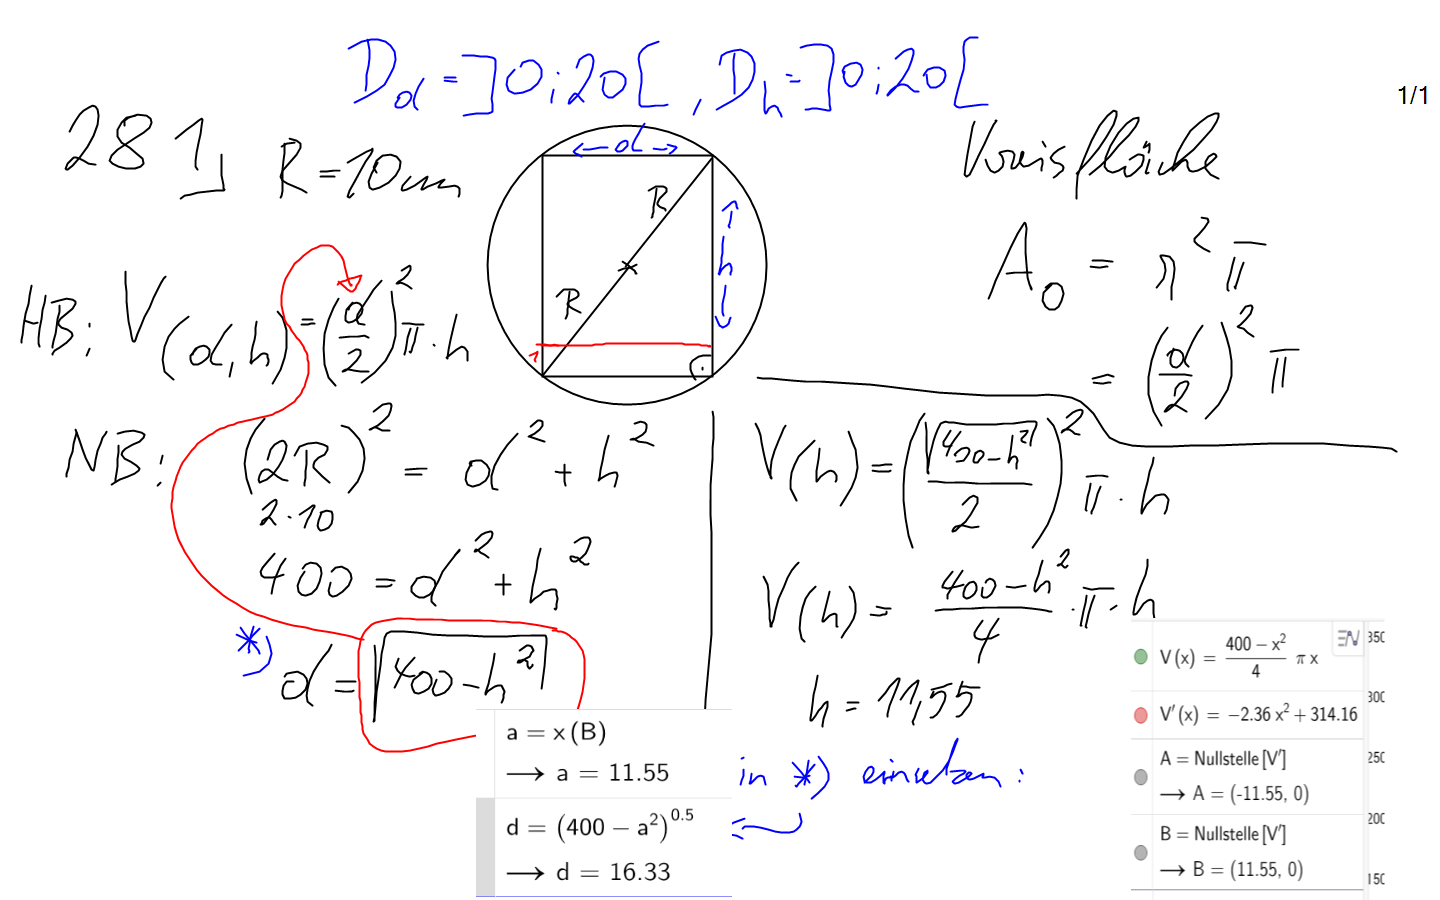 D_d = ]0;20[ , D_h = ]0;20[
1/1
281⌋ R = 10cm
d
R
h
R
1
Kreisfläche
A_0 = r²π
= (d/2)² π
HB: V(d,h) = (d/2)² π · h
NB: (2R)² = d² + h²
2·10
400 = d² + h²
*) d = √(400-h²)
V(h) = (√(400-h²)/2)² π · h
V(h) = (400-h²)/4 · π · h
h = 11,55
in *) einsetzen:
a = x(B)
→ a = 11.55
d = (400 − a²)^0.5
→ d = 16.33
V(x) = (400 − x²)/4 π x
V'(x) = −2.36 x² + 314.16
A = Nullstelle[V']
→ A = (-11.55, 0)
B = Nullstelle[V']
→ B = (11.55, 0)
350
300
250
200
150